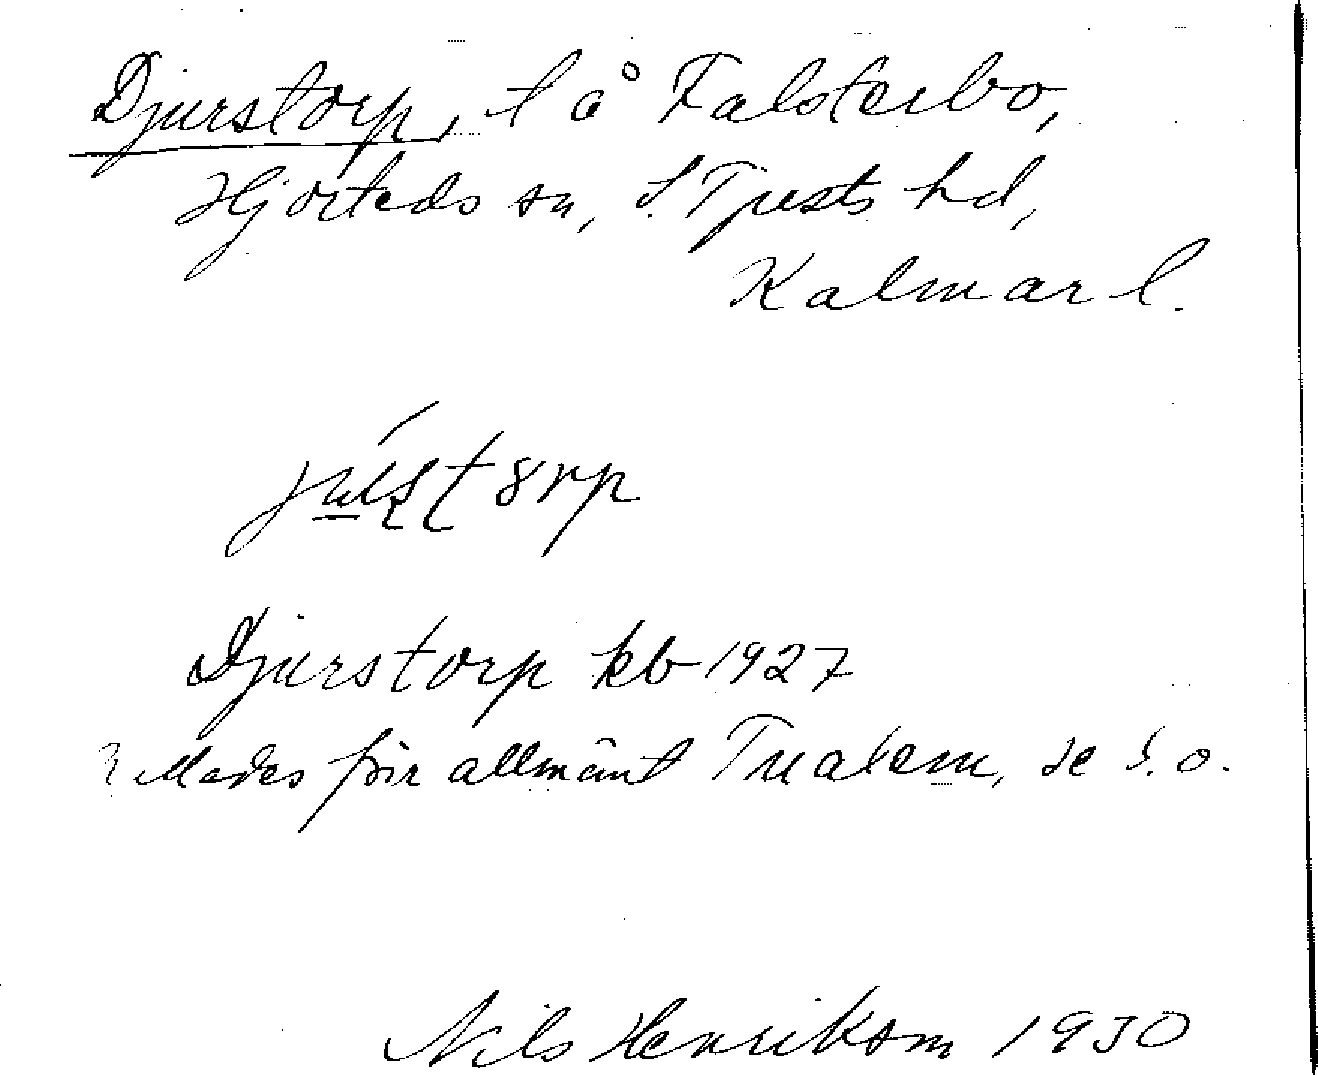 Djurstorp, t å Falsterbo,
Hjorteds sn, S. Tjusts hd,
Kalmar l.
Djurstorp kb 1927
Kallades förr allmänt Trualem, se d. o.
Nils Henrikson 1930